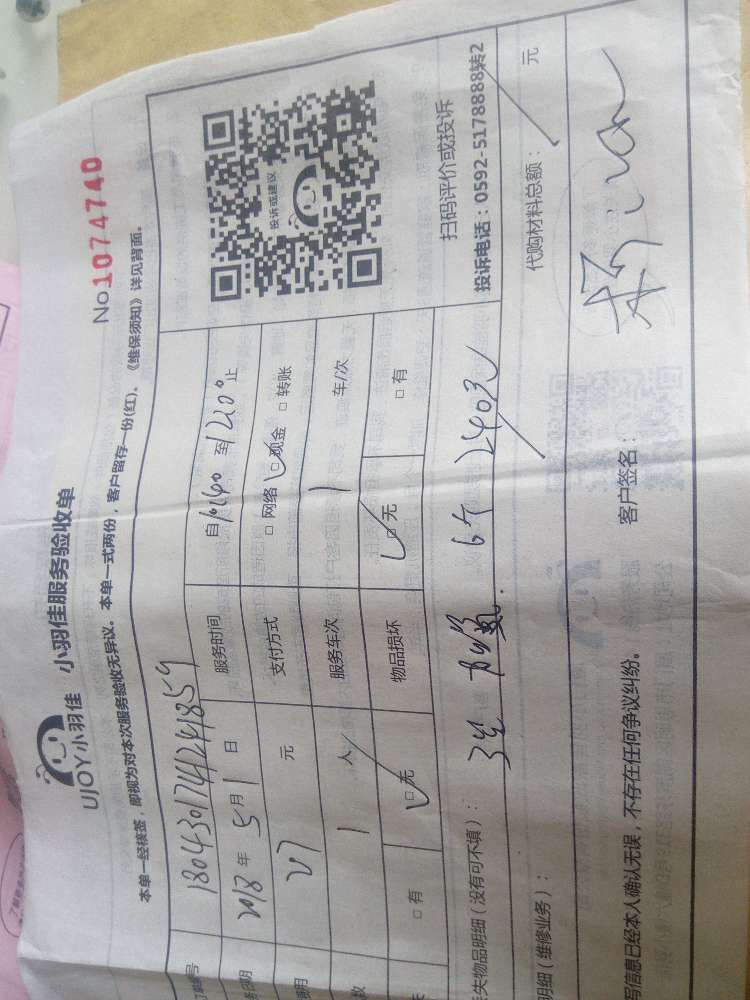 UJOY小羽佳 小羽佳服务验收单
No1074740
本单一经核签，即视为对本次服务验收无异议。本单一式两份，客户留存一份(红)。《维保须知》详见背面。
单号 180430174241859 服务时间 自 至 1200 止
2018 年 5 月 1 日 支付方式 □ 网络 □ 现金 □ 转账
元 服务车次 1 车/次
1 人 物品损坏 □ 无 □ 有
□ 有 □ 无
投诉或建议
扫码评价或投诉
投诉电话：0592-5178888转2
失物品明细（没有可不填）： 加氟 2403元
明细（维修业务）： 代购材料总额： 元
写信息已经本人确认无误，不存在任何争议纠纷。 客户签名：